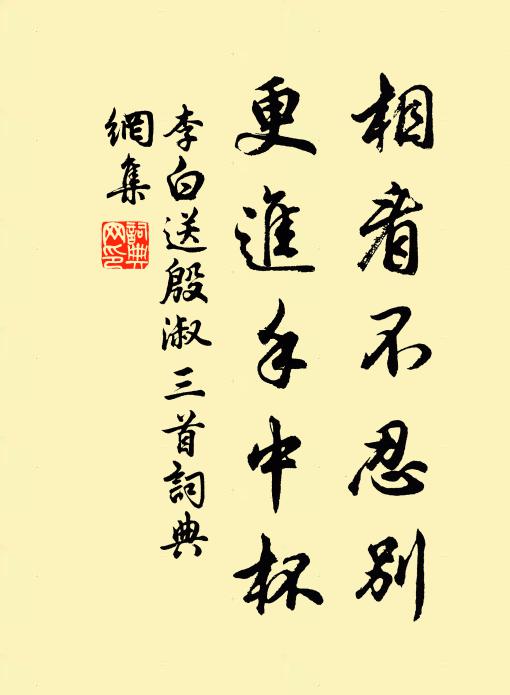 相看不忍别
更進手中杯
李白送殷淑三首詞典
網集
詞典網印